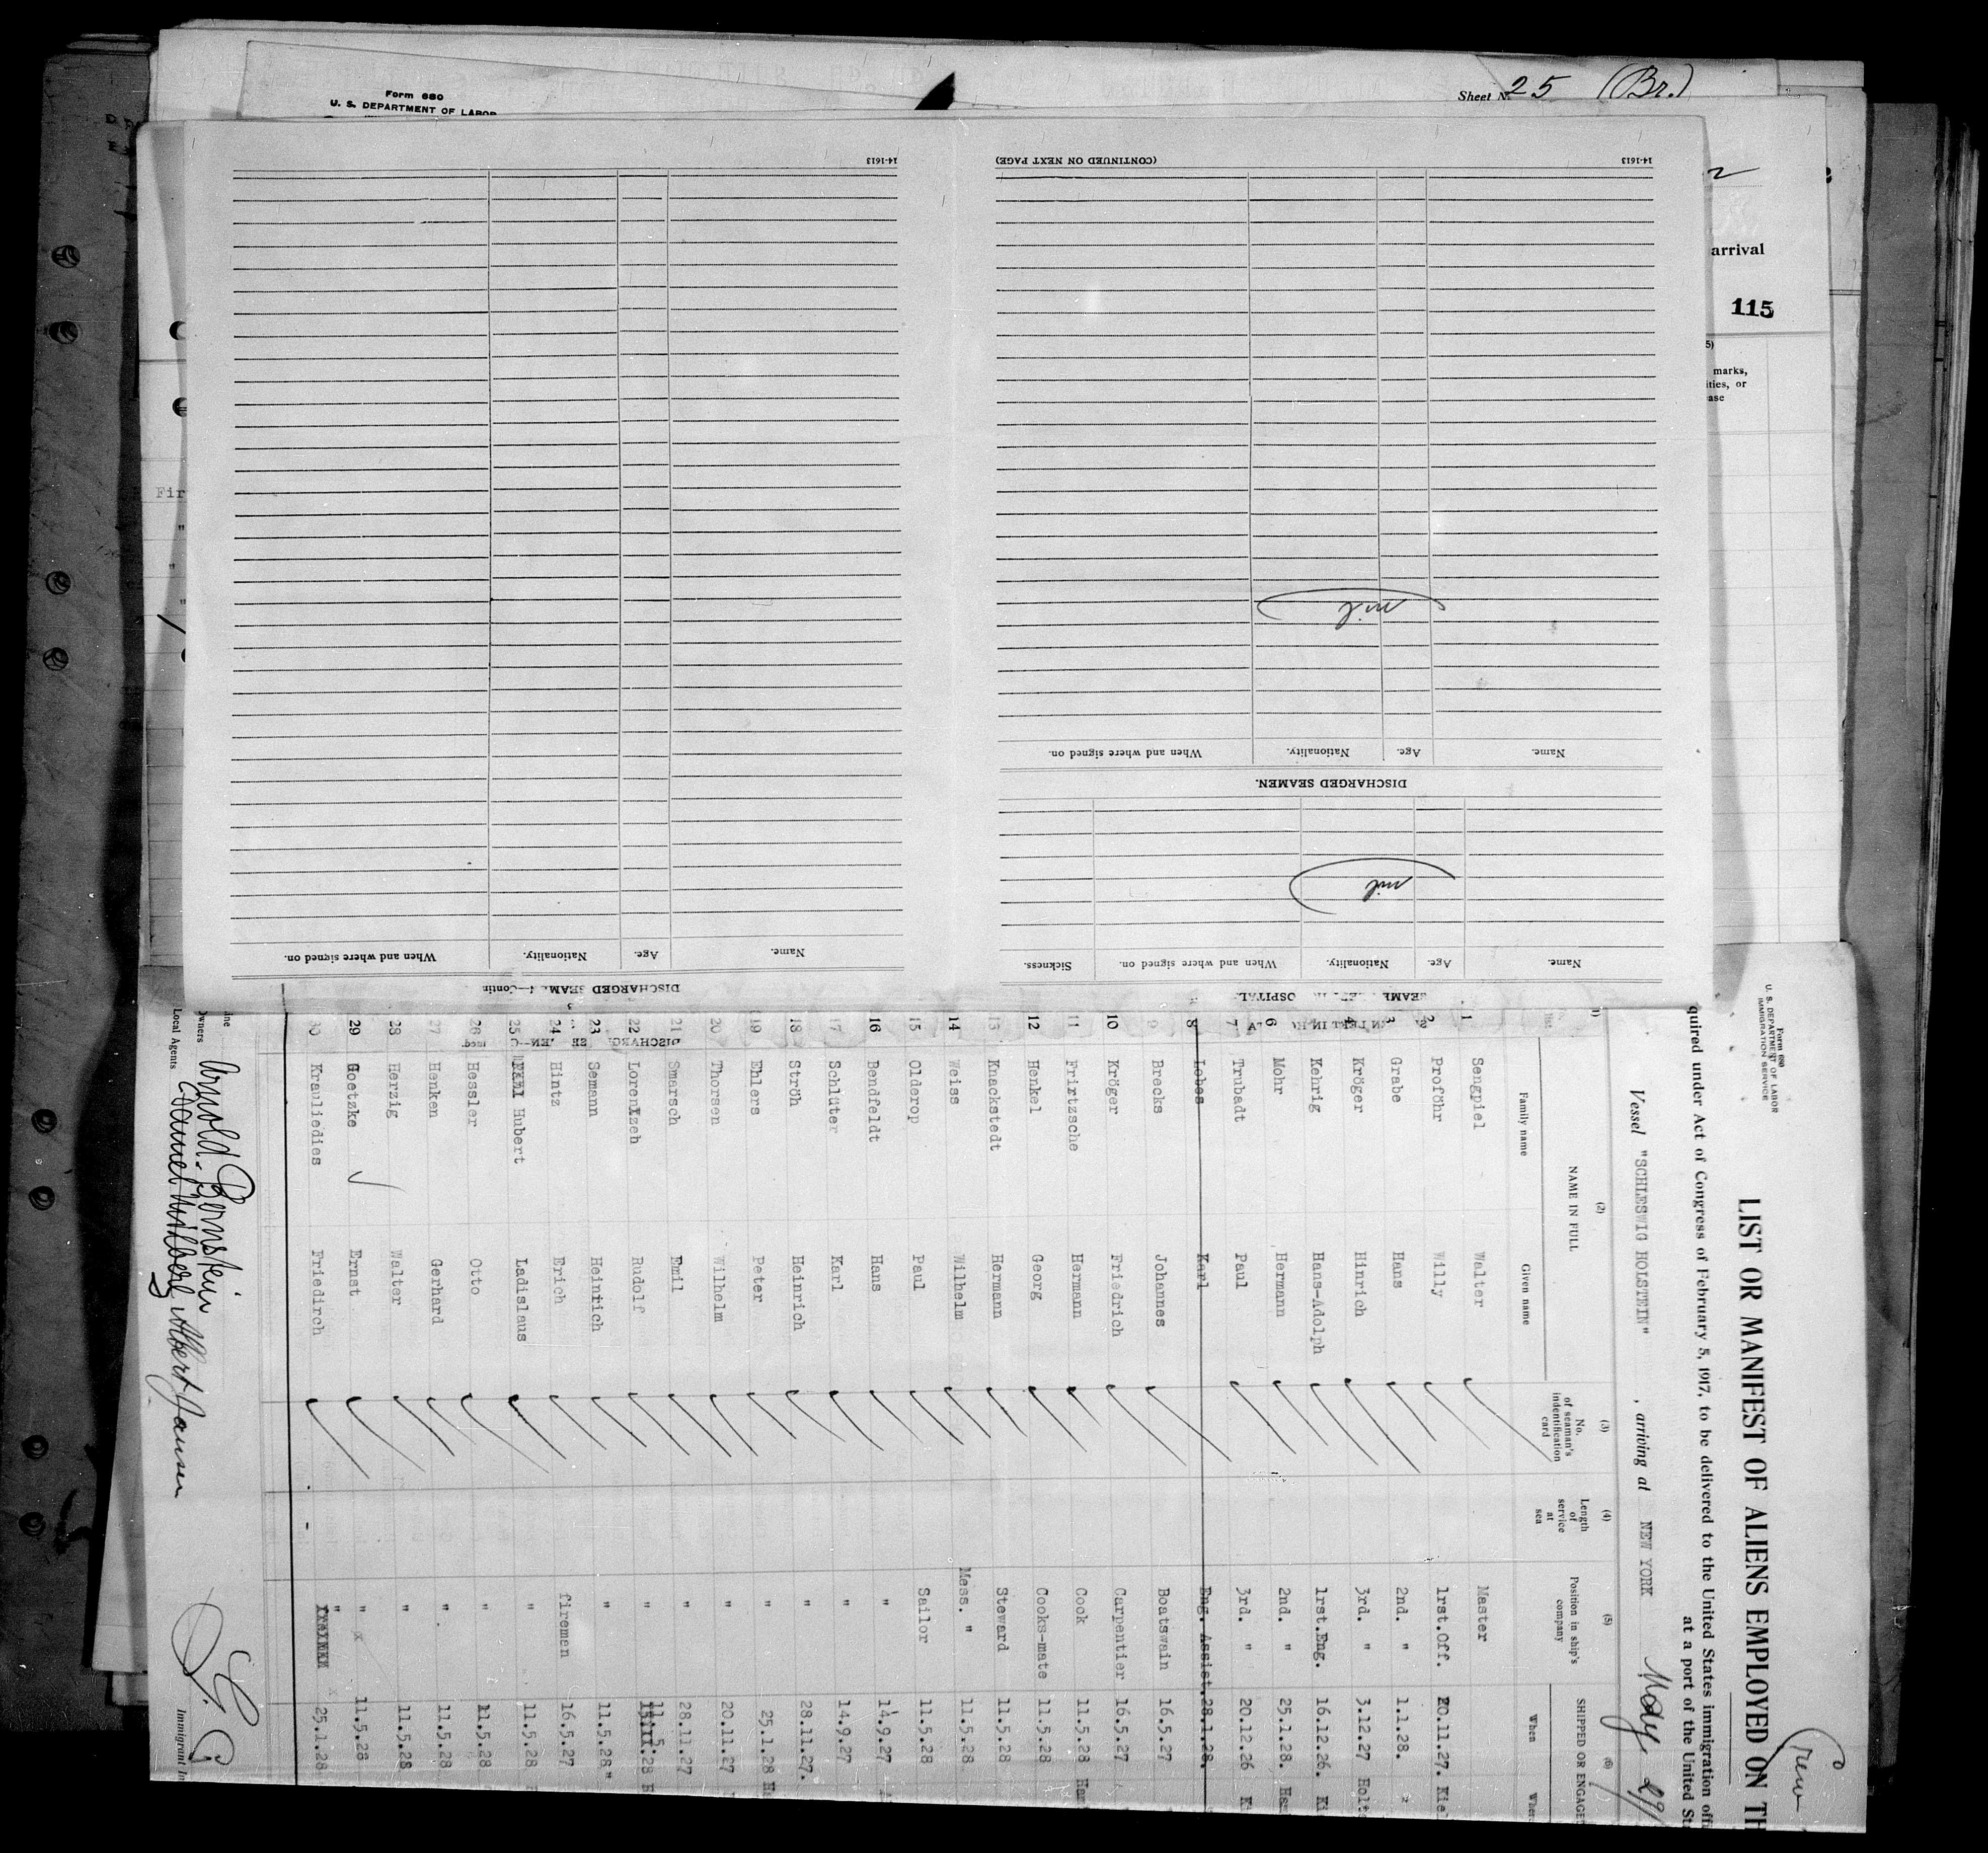 Form 680
U. S. DEPARTMENT OF LABOR
Sheet No. 25 (Br.)
arrival
115
5)
marks,
ities, or
ase
Fir
"
"
"
14-1613
DISCHARGED SEAMEN—Contin
Name. Age. Nationality. When and where signed on.
SEAMEN LEFT IN HOSPITAL
Name. Age. Nationality. When and where signed on. Sickness.
nil
DISCHARGED SEAMEN.
Name. Age. Nationality. When and where signed on.
nil
(CONTINUED ON NEXT PAGE)
14-1613
Form 680
U. S. DEPARTMENT OF LABOR
IMMIGRATION SERVICE
Crew
LIST OR MANIFEST OF ALIENS EMPLOYED ON TH
quired under Act of Congress of February 5, 1917, to be delivered to the United States immigration offi
at a port of the United St
Vessel "SCHLESWIG HOLSTEIN" , arriving at NEW YORK May 29
(1) (2) (3) (4) (5) (6)
NAME IN FULL
Family name Given name
No. of seaman's indentification card
Length of service at sea
Position in ship's company
SHIPPED OR ENGAGED
When Where
1 Sengpiel Walter Master
2 Proföhr Willy 1rst.Off. 20.11.27. Kiel
3 Grabe Hans 2nd. " 1.1.28. "
4 Kröger Hinrich 3rd. " 3.12.27 Holte
5 Kehrig Hans-Adolph 1rst.Eng. 16.12.26. Ki
6 Mohr Hermann 2nd. " 25.1.28. Ham
7 Trubadt Paul 3rd. " 20.12.26 Ki
8 Lobes Karl Eng. Assist. 28.1.28.
9 Brecks Johannes Boatswain 16.5.27
10 Kröger Friedrich Carpentier 16.5.27
11 Frirtzsche Hermann Cook 11.5.28 Ham
12 Henkel Georg Cooks-mate 11.5.28
13 Knackstedt Hermann Steward 11.5.28
14 Weiss Wilhelm Mess. " 11.5.28
15 Olderop Paul Sailor 11.5.28
16 Bendfeldt Hans " 14.9.27
17 Schlüter Karl " 14.9.27
18 Ströh Heinrich " 28.11.27.
19 Ehlers Peter " 25.1.28 Ha
20 Thorsen Wilhelm " 20.11.27
21 Smarsch Emil " 28.11.27
22 Lorenzeh Rudolf " 11.5.28
23 Semann Heinrich " 11.5.28 "
24 Hintz Erich fireman 16.5.27
25 Hubert Ladislaus " 11.5.28
26 Hessler Otto " 11.5.28
27 Henken Gerhard " 11.5.28
28 Herzig Walter " 11.5.28
29 Goetzke Ernst " 11.5.28
30 Krauliedies Friedirch " 25.1.28
ine
wners Arnold Bernstein
Local Agents Daniel Milberg Albert Jansen
Immigrant In